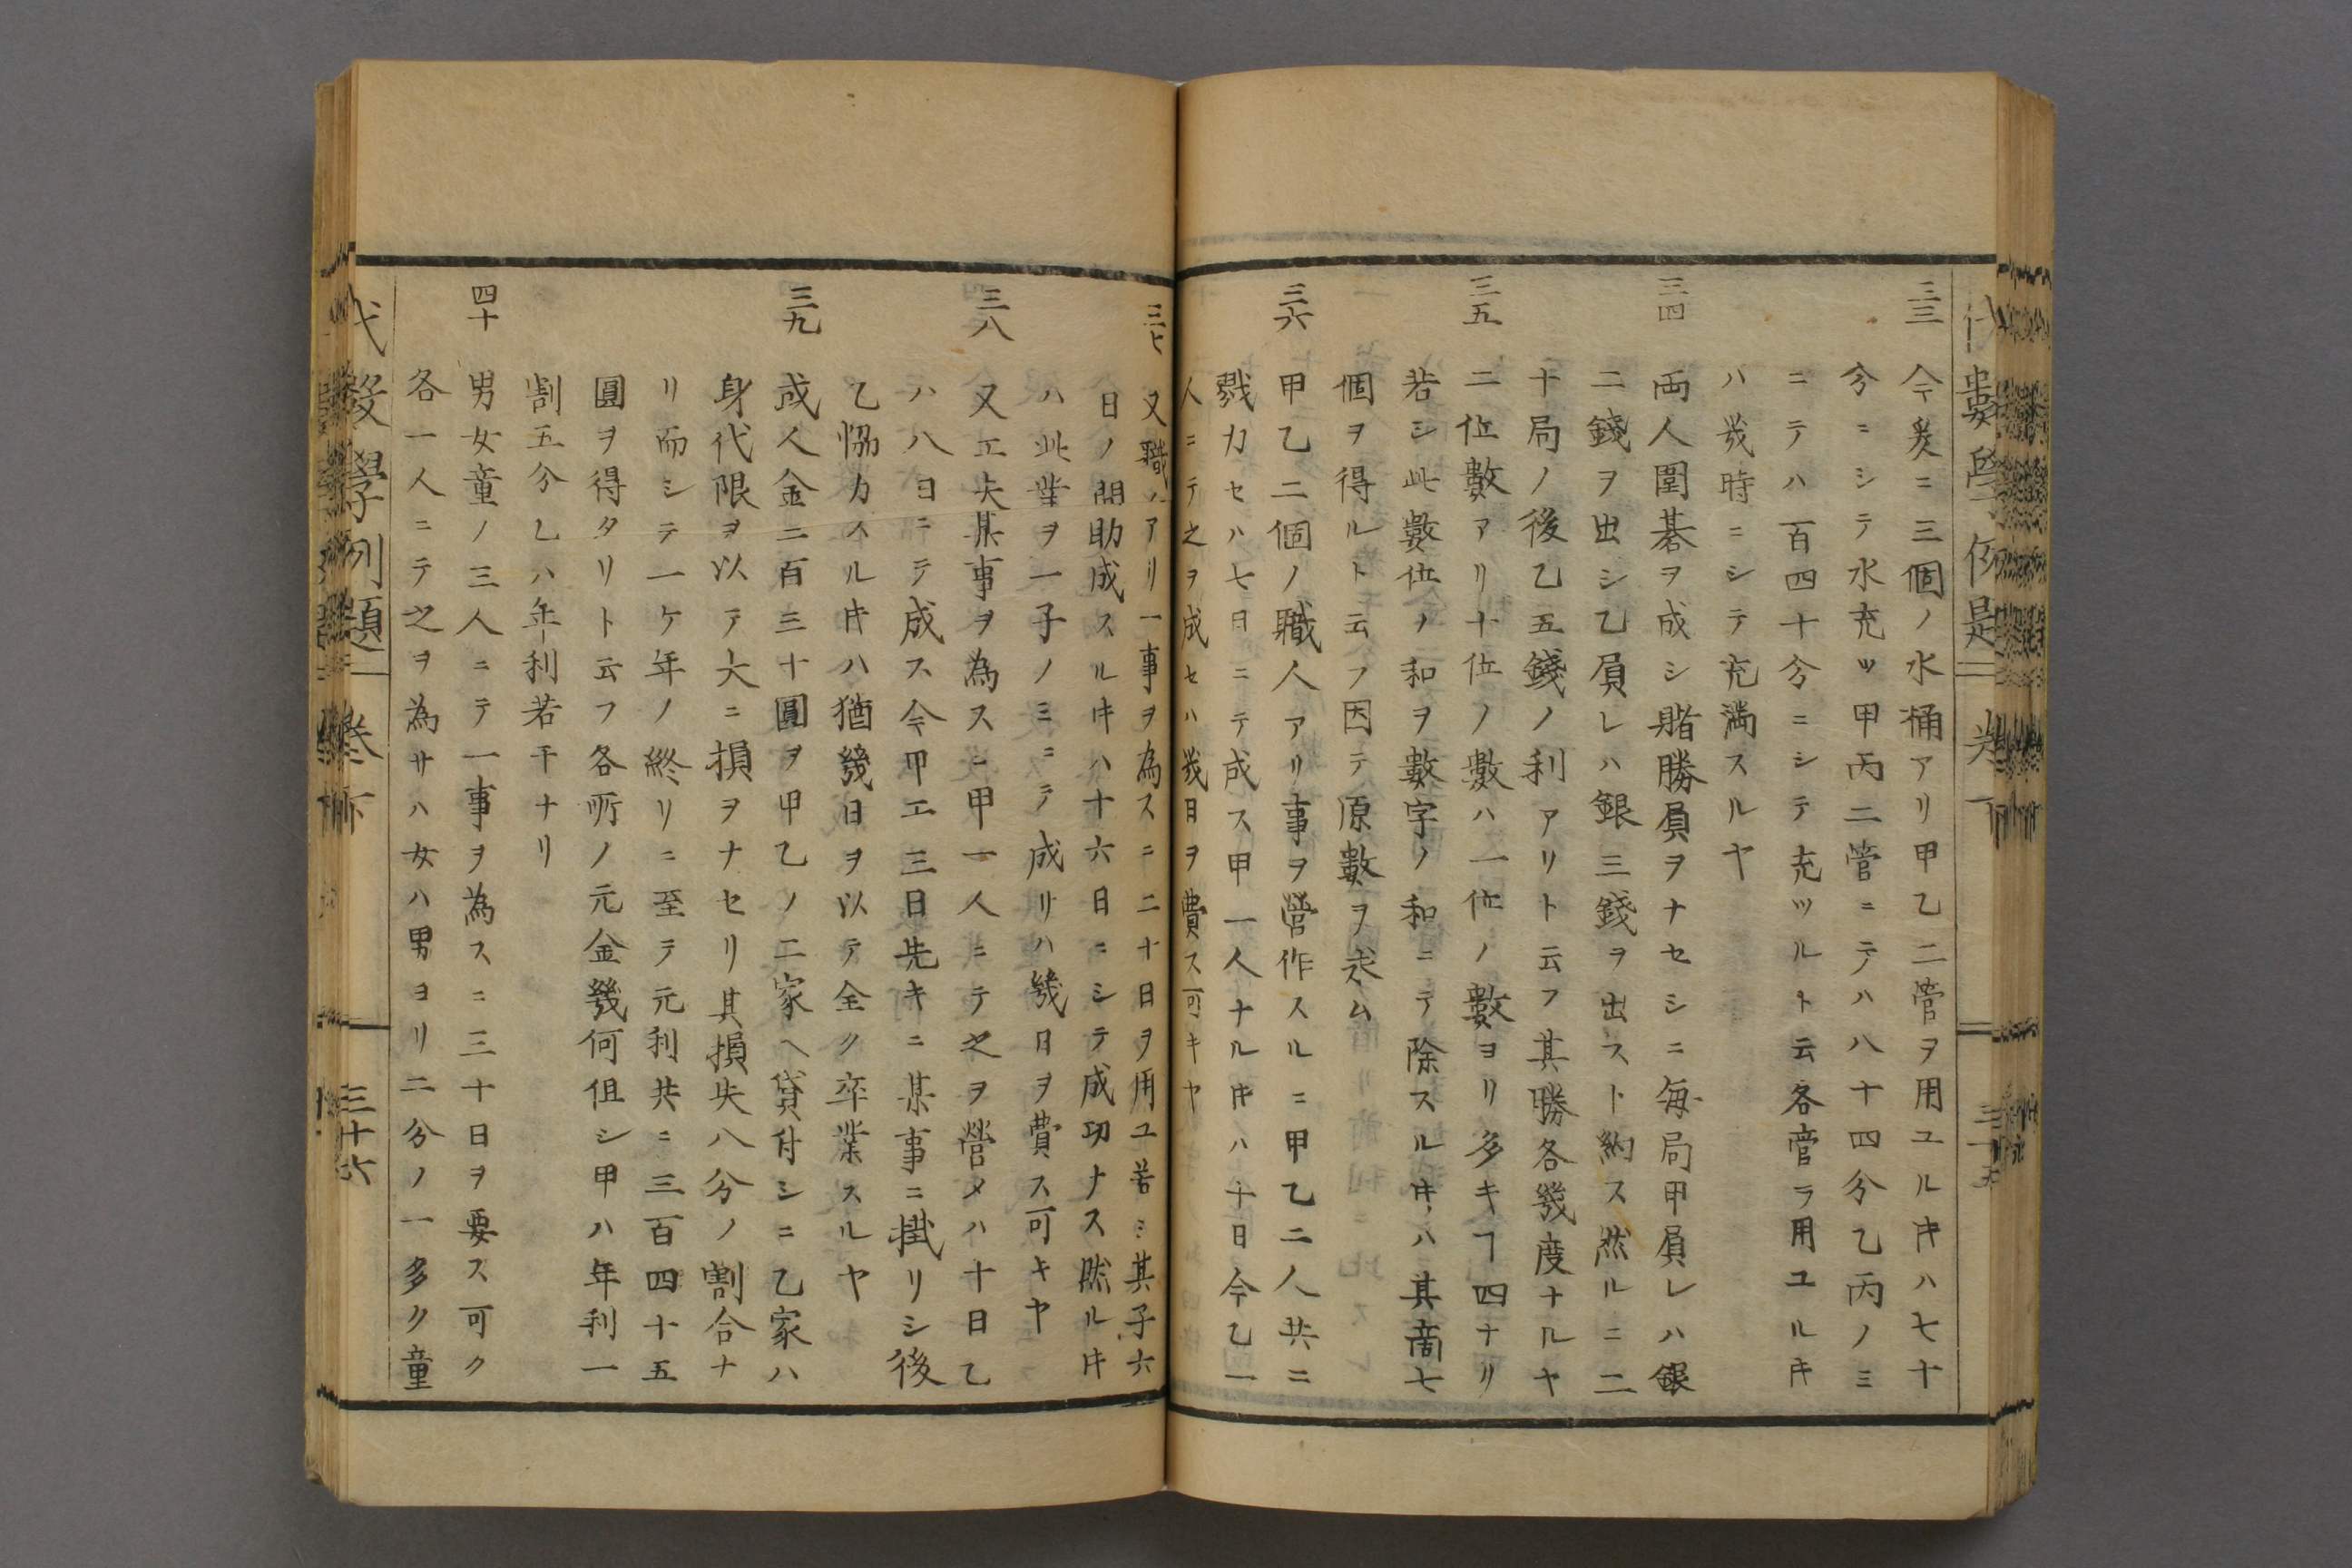 三三 今爰ニ三個ノ水桶アリ甲乙二管ヲ用ユルヰハ七十
分ニシテ水充ツ甲丙二管ニテハ八十四分乙丙ノミ
ニテハ百四十分ニシテ充ツルト云各管ヲ用ユルヰ
ハ幾時ニシテ充満スルヤ
三四 両人圍碁ヲ成シ賭勝負ヲナセシニ毎局甲負レハ銀
二錢ヲ出シ乙負レハ銀三錢ヲ出スト約ス然ルニ二
十局ノ後乙五錢ノ利アリト云フ其勝各幾度ナルヤ
三五 二位數アリ十位ノ數ハ一位ノ數ヨリ多キヿ四ナリ
若シ此數位ノ和ヲ數字ノ和ニテ除スルヰハ其商七
個ヲ得ルト云フ因テ原數ヲ求ム
三六 甲乙二個ノ職人アリ事ヲ營作スルニ甲乙二人共ニ
戮力セハ七日ニテ成ス甲一人ナルヰハ十日今乙一
人ニテ之ヲ成セハ幾日ヲ費ス可キヤ
三七 又職人アリ一事ヲ為スニ二十日ヲ用ユ若シ其子六
日ノ間助成スルヰハ十六日ニシテ成功ナス然ルヰ
ハ此業ヲ一子ノミニテ成リハ幾日ヲ費ス可キヤ
三八 又工夫某事ヲ為スニ甲一人ニテ之ヲ營メハ十日乙
ハ八日ニテ成ス今甲工三日先キニ某事ニ掛リシ後
乙恊力スルヰハ猶幾日ヲ以テ全ク卒業スルヤ
三九 或人金二百三十圓ヲ甲乙ノ二家ヘ貸付シニ乙家ハ
身代限ヲ以テ大ニ損ヲナセリ其損失八分ノ割合ナ
リ而シテ一ケ年ノ終リニ至テ元利共ニ三百四十五
圓ヲ得タリト云フ各所ノ元金幾何但シ甲ハ年利一
割五分乙ハ年利若干ナリ
四十 男女童ノ三人ニテ一事ヲ為スニ三十日ヲ要ス可ク
各一人ニテ之ヲ為サハ女ハ男ヨリ二分ノ一多ク童
代數學例題 巻下 三十六